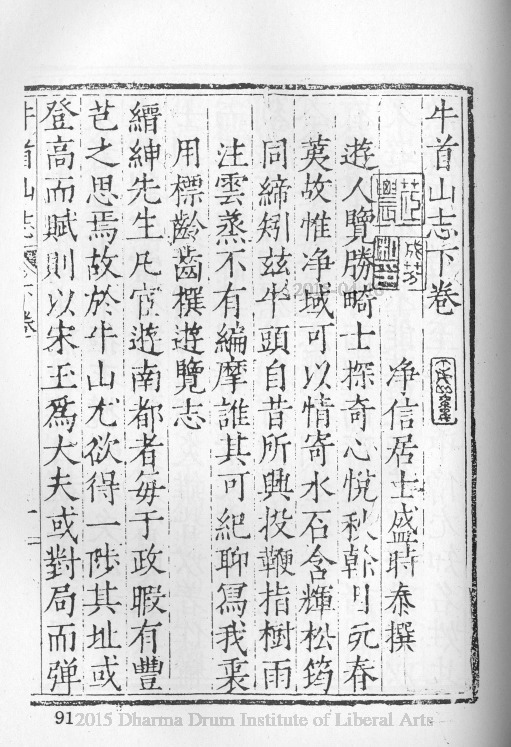 牛首山志下卷
淨信居士盛時泰撰
遊人覽勝畸士探奇心悅秋幹目玩春
荑故惟净域可以情寄水石含輝松筠
同締矧兹牛頭自昔所興投鞭指樹雨
注雲蒸不有編摩誰其可紀聊寫我裏
用標齡齒樶遊覽志
縉紳先生凡宦遊南都者每于政暇有豐
芑之思焉故於牛山尤欲得一陟其址或
登高而賦則以宋玉爲大夫或對局而弹
牛首山志 下卷 一
91
2015 Dharma Drum Institute of Liberal Arts